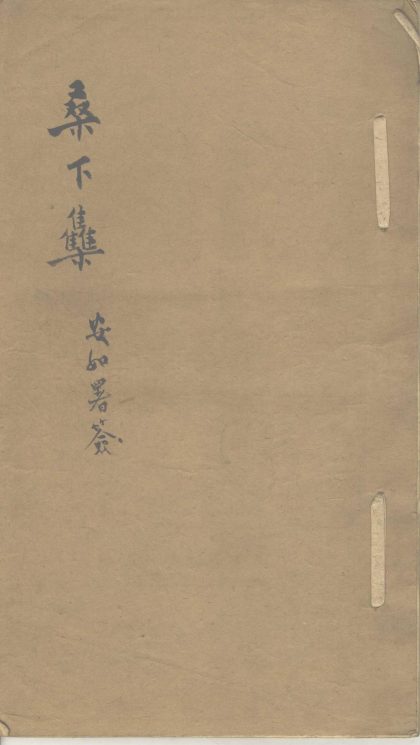 桑下雧
安如署簽